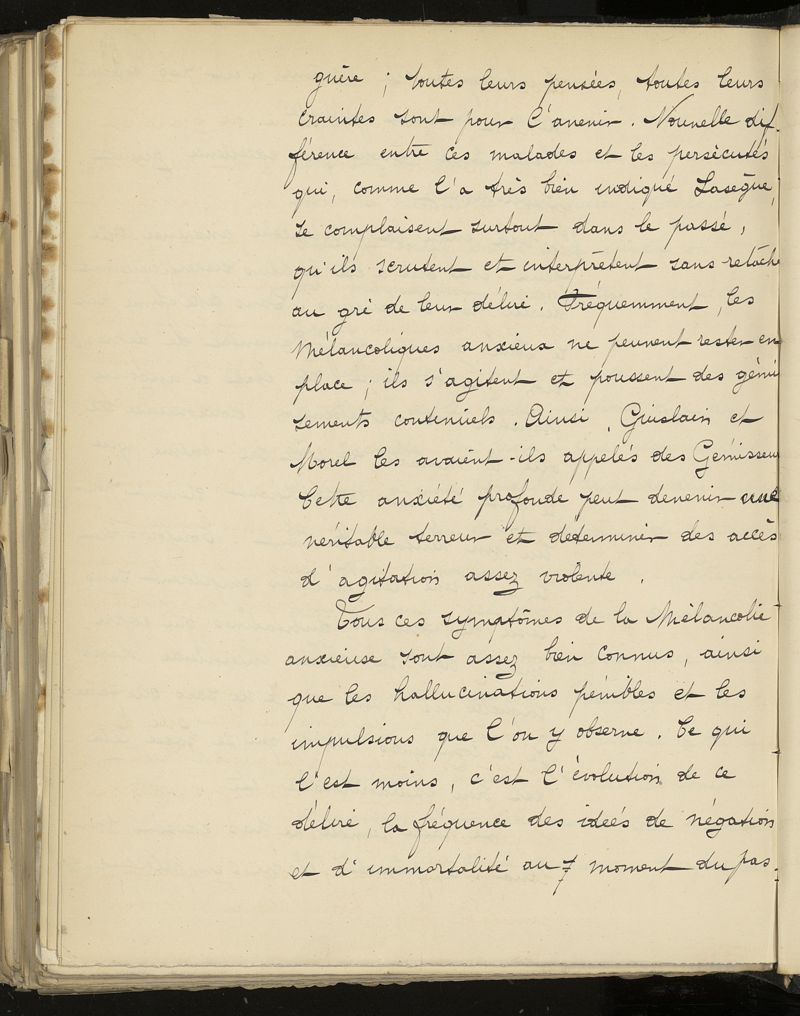 guère ; toutes leurs pensées, toutes leurs
craintes sont pour l'avenir. Nouvelle dif-
férence entre ces malades et les persécutés
qui, comme l'a très bien indiqué Lasègue,
se complaisent surtout dans le passé,
qu'ils scrutent et interprètent sans relâche
au gré de leur délire. Fréquemment, les
Mélancoliques anxieux ne peuvent rester en
place ; ils s'agitent et poussent des gémi
sements continuels. Ainsi, Guislain et
Morel les avaient-ils appelés des Gémisseurs
Cette anxiété profonde peut devenir une
véritable terreur et déterminer des accès
d'agitation assez violente.
Tous ces symptômes de la Mélancolie
anxieuse sont assez bien connus, ainsi
que les hallucinations pénibles et les
impulsions que l'on y observe. Ce qui
l'est moins, c'est l'évolution de ce
délire, la fréquence des idées de négation
et d'immortalité au moment du pas-